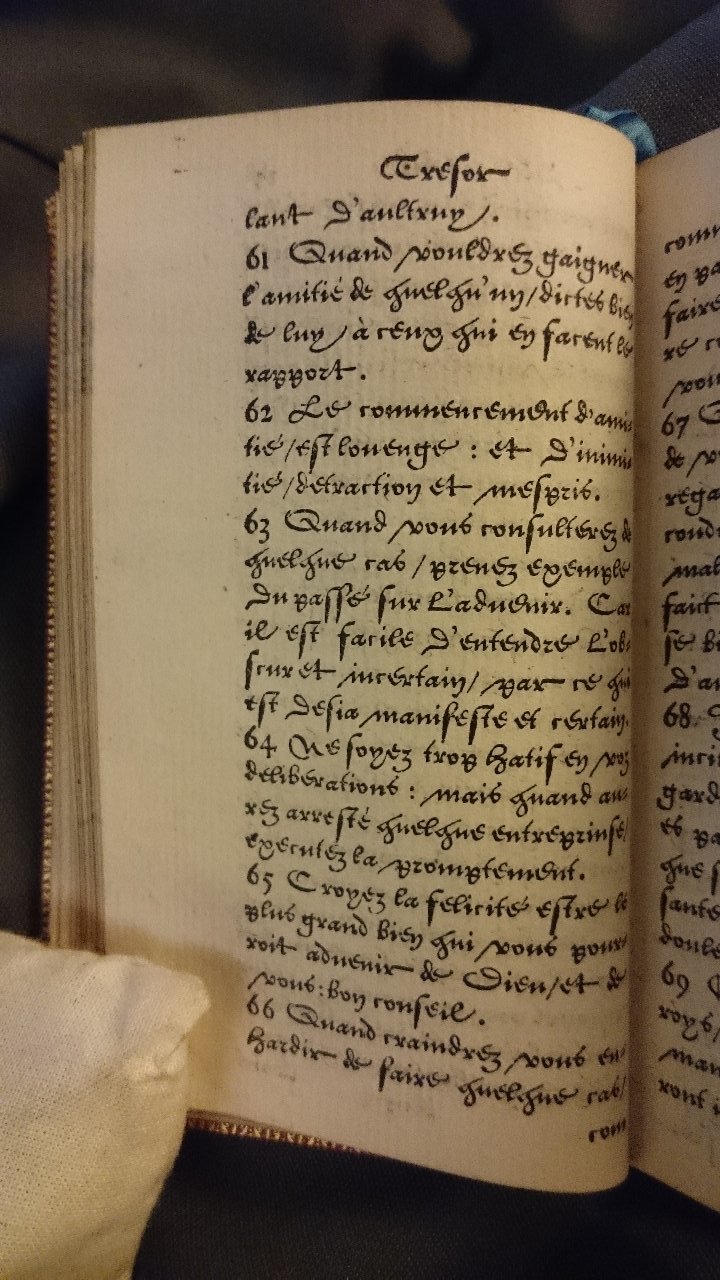 Tresor
lant d'aultruy/.
61 Quand vouldrez gaigner
l'amitié de quelqu'un/dictes bien
de luy/à ceux qui en facent le
rapport.
62 Le commencement d'ami-
tié/est louenge : et d'inimi-
tié/detraction et mespris.
63 Quand vous consulterez de
quelque cas/prenez exemple
du passé sur l'aduenir. Car
il est facile d'entendre l'ob-
scur et incertain/ par ce qui
est desia manifeste et certain.
64 Ne soyez trop hatif en voz
deliberations : mais quand au-
rez arresté quelque entreprinse/
executez la promptement.
65 Croyez la felicité estre le
plus grand bien qui vous pour-
roit aduenir de Dieu/et de
vous: bon conseil.
66 Quand craindrez vous en-
hardir de faire quelque cas/
com
en
faire
67
de
68
69
roys/
ront